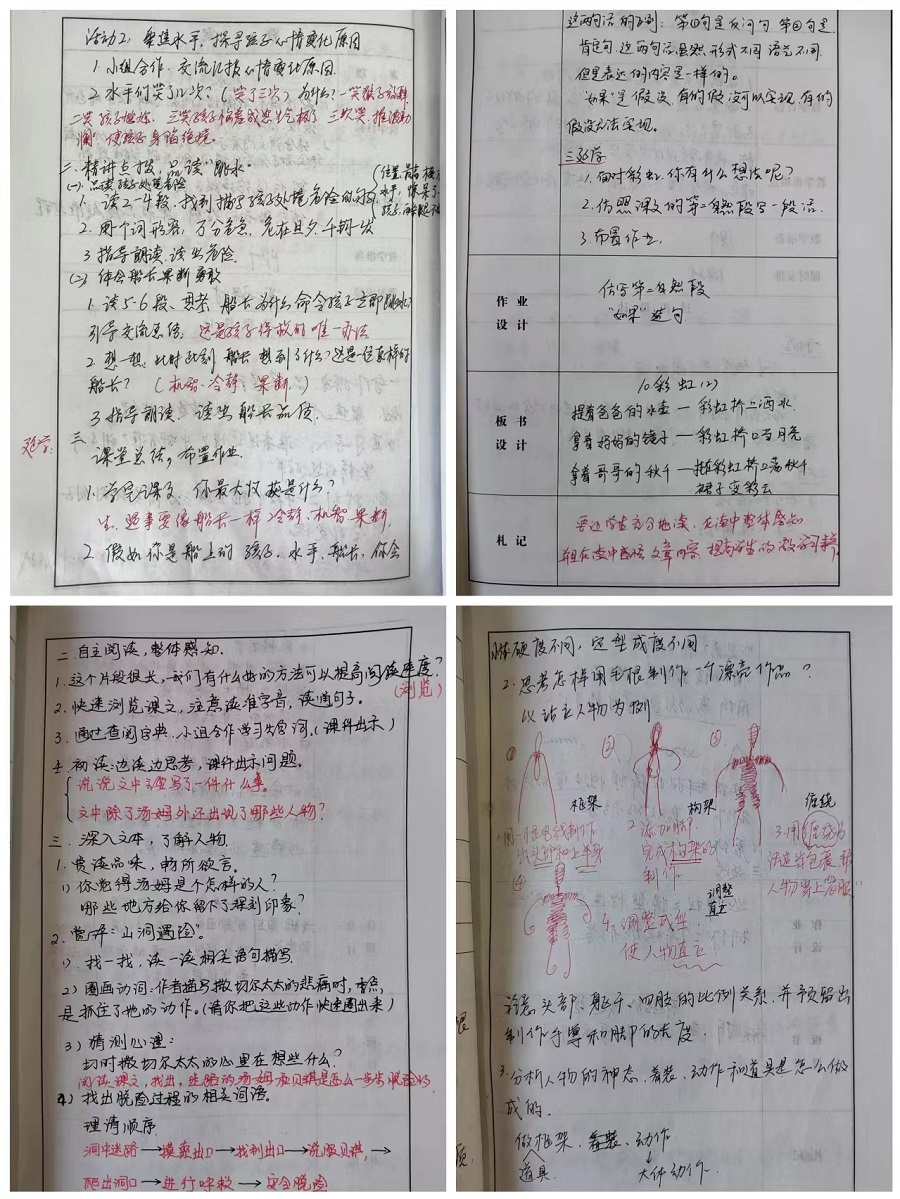 活动2：聚焦水手，探寻孩子心情变化原因
1. 小组合作，交流汇报心情变化原因.
2. 水手们笑了几次？（笑了三次）为什么？一笑猴子放肆
二笑孩子尴尬，三笑孩子
澜，使孩子身陷绝境.
二. 精讲点拨，品读“跳水”
(一). 品读孩子处境危险
1. 读2-4段，找到描写了孩子处境危险的句子
2. 用个词形容，万分危急、危在旦夕、千钧一发
3. 指导朗读，读出危险
(二) 体会船长果断勇敢
1. 读5-6段，思考，船长为什么命令孩子立即跳水？
引导交流总结，这是孩子得救的唯一办法
2. 想一想，此时此刻船长想到了什么？这是一位怎样的
船长？（机智、冷静、果断）
3. 指导朗读，读出船长品质.
延学：三
课堂总结，布置作业
1. 学完课文，你最大收获是什么？
生：遇事要像船长一样冷静、机智、果断.
2. 假如你是船上的孩子、水手、船长，你会
这两句话的区别：第①句是反问句，第②句是
肯定句，这两句话虽然形式不同，语气不同，
但是表达的内容是一样的。
“如果”是假设，有的假设可以实现，有的
假设无法实现。
三延学
1. 面对彩虹，你有什么想法呢？
2. 仿照课文的第二自然段写一段话.
3. 布置作业.
作业
设计
仿写第二自然段
“如果”造句
板书
设计
10. 彩虹 (2)
提着爸爸的水壶 — 彩虹桥上洒水
拿着妈妈的镜子 — 彩虹桥 当月亮
拿着哥哥的秋千 — 挂彩虹桥上荡秋千
裙子变彩云
札记
要让学生充分地读，在读中整体感知
并在读中 文章内容，提高学生的
二. 自主阅读，整体感知.
1. 这个片段很长，我们有什么好的方法可以提高阅读速度？
（浏览）
2. 快速浏览课文，注意读准字音，读通句子。
3. 通过查阅字典、小组合作学习生字词。（课件出示）
4. 初读：边读边思考，课件出示问题。
说说文中主要写了一件什么事。
文中除了汤姆外还出现了哪些人物？
三. 深入文本，了解人物
1. 赏读品味，畅所欲言。
1) 你觉得汤姆是个怎样的人？
哪些地方给你留下了深刻印象？
2. 赏析“山洞遇险”。
1). 找一找，读一读相关语句描写.
2) 圈画动词：作者描写撒切尔太太的悲痛时，重点
是抓住了她的动作。（请你把这些动作快速圈出来）
3) 猜测心理：
当时撒切尔太太的心里在想些什么？
阅读课文，找出，迷路的汤姆和贝琪是怎么一步步脱险的
4) 找出脱险过程的相关词语。
理清顺序
洞中迷路→摸索出口→找到出口→说服贝琪→
爬出洞口→进行呼救→安全脱险
硬度不同，定型成度不同
2. 思考怎样用毛根制作一个漂亮作品？
以站立人物为例
① ② ③
框架
构架
缠绕
2. 添加脚，
完成构架的
制作
④
调整
直立
4. 调整成型，
使人物直立！
注意头部、躯干、四肢的比例关系，并预留出
制作手掌和脚的长度.
3. 分析人物的神态、着装、动作和道具是怎么做
成的.
做框架、着装、动作
道具 大体动作.